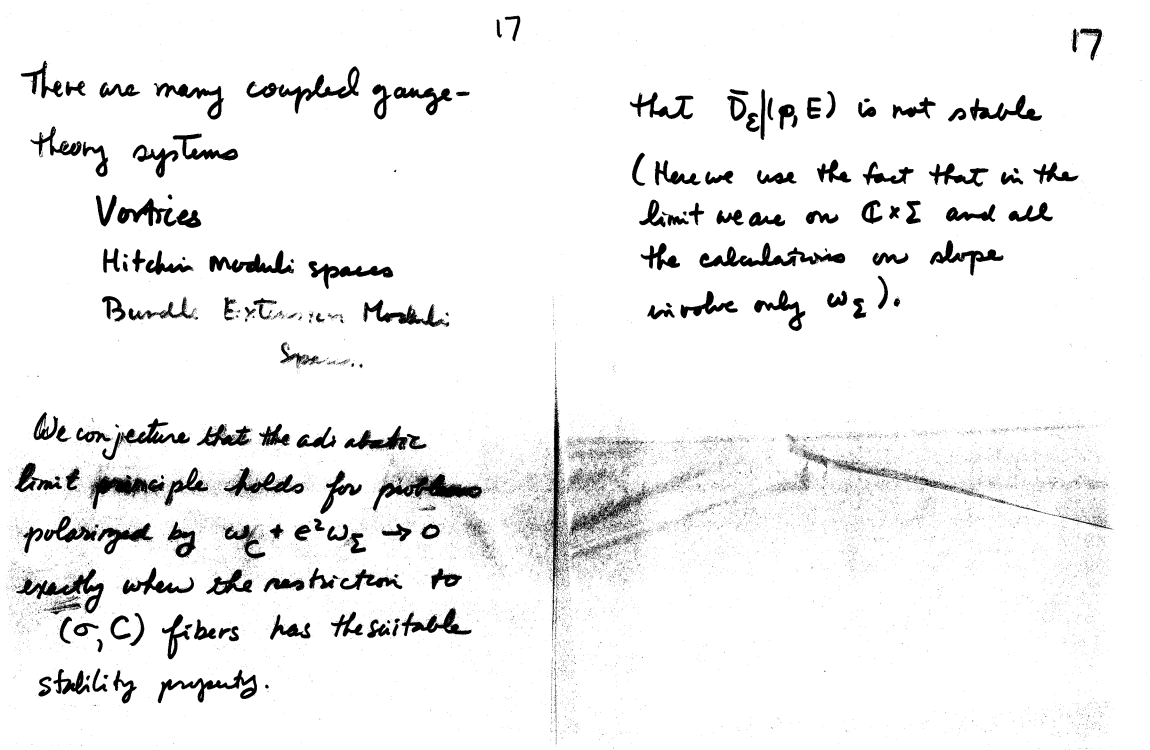 17
There are many coupled gauge-
theory systems
Vortices
Hitchin Moduli spaces
Bundle Extension Moduli
Spa...
We conjecture that the adiabatic
limit principle holds for problems
polarized by ω_C + e²ω_Σ → 0
exactly when the restriction to
(σ, C) fibers has the suitable
stability property.
17
that D̄_Σ|(p, E) is not stable
(Here we use the fact that in the
limit we are on ℂ×Σ and all
the calculations on slope
involve only ω_Σ).